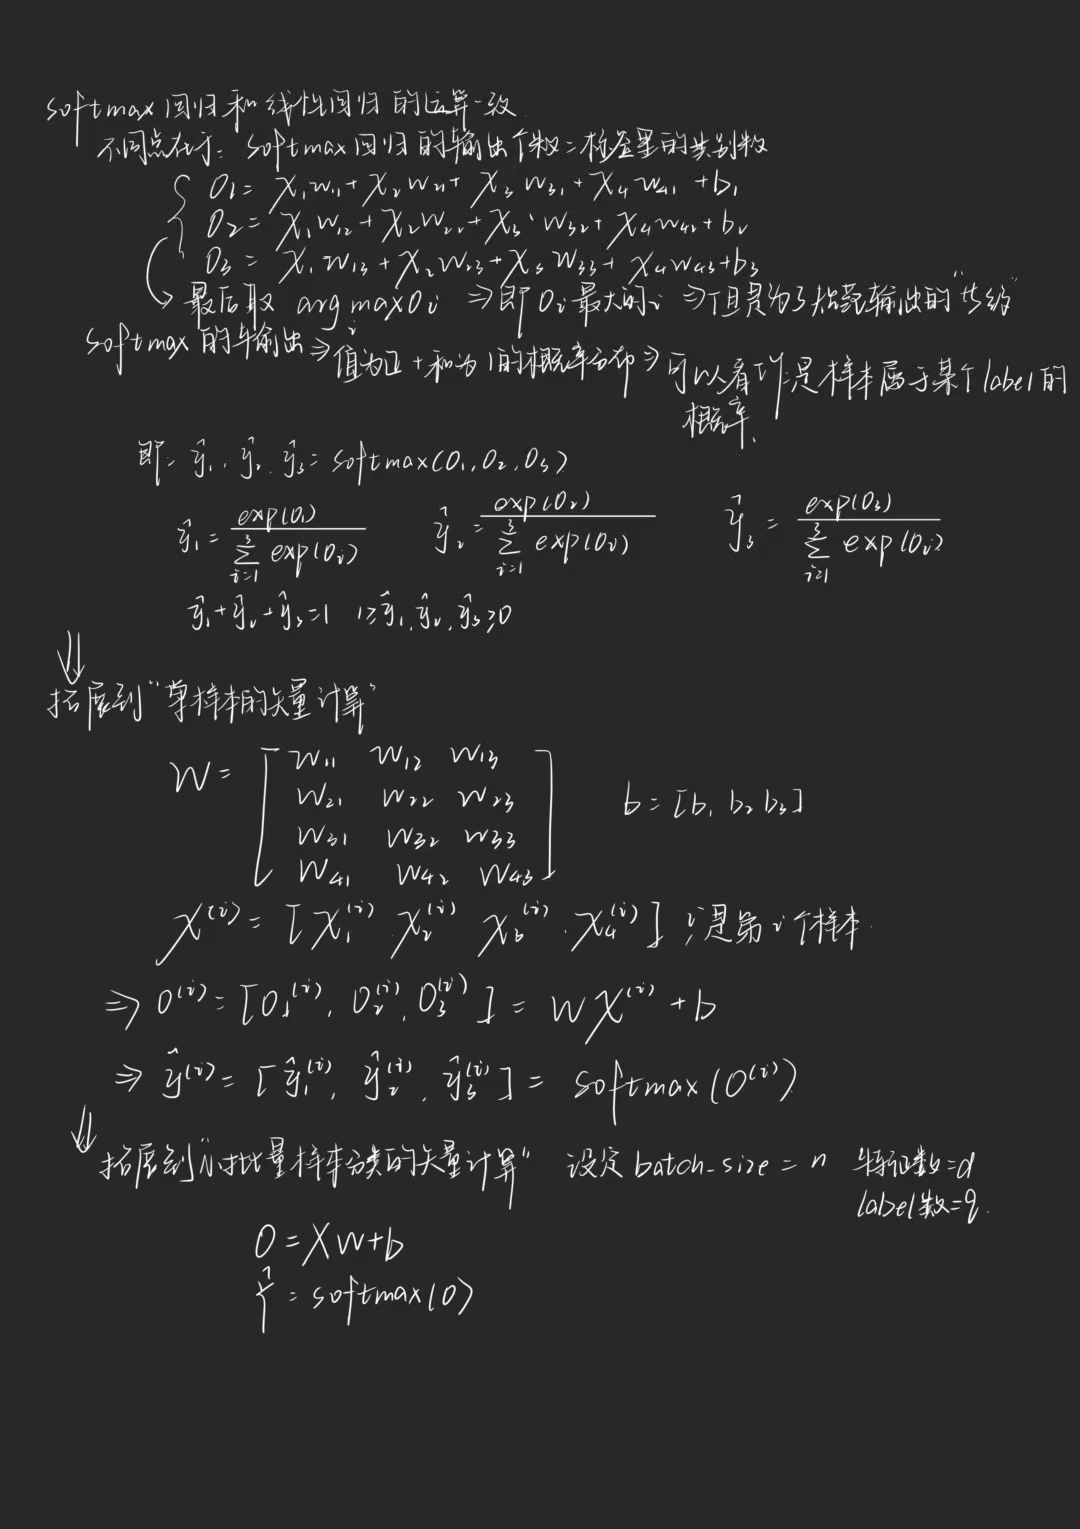 softmax回归和线性回归的运算一致.
不同点在于: softmax回归的输出个数=标签里的类别数
O₁= X₁W₁₁+X₂W₂₁+X₃W₃₁+X₄W₄₁+b₁
O₂= X₁W₁₂+X₂W₂₂+X₃W₃₂+X₄W₄₂+b₂
O₃= X₁W₁₃+X₂W₂₃+X₃W₃₃+X₄W₄₃+b₃
最后取 arg max Oᵢ ⇒即Oᵢ最大的i ⇒但是为了规范输出的"
i
softmax的输出⇒值为正+和为1的概率分布⇒可以看作是样本属于某个label的
概率.
即: ŷ₁, ŷ₂, ŷ₃= softmax(O₁, O₂, O₃)
ŷ₁= exp(O₁) / ∑³ᵢ₌₁ exp(Oᵢ) ŷ₂= exp(O₂) / ∑³ᵢ₌₁ exp(Oᵢ) ŷ₃= exp(O₃) / ∑³ᵢ₌₁ exp(Oᵢ)
ŷ₁+ŷ₂+ŷ₃=1 1≥ŷ₁,ŷ₂,ŷ₃≥0
⇓
拓展到"单样本的矢量计算"
W= [ W₁₁ W₁₂ W₁₃
W₂₁ W₂₂ W₂₃
W₃₁ W₃₂ W₃₃
W₄₁ W₄₂ W₄₃ ] b=[b₁ b₂ b₃]
X⁽ⁱ⁾= [X₁⁽ⁱ⁾ X₂⁽ⁱ⁾ X₃⁽ⁱ⁾ X₄⁽ⁱ⁾] i是第i个样本.
⇒ O⁽ⁱ⁾=[O₁⁽ⁱ⁾, O₂⁽ⁱ⁾, O₃⁽ⁱ⁾]= WX⁽ⁱ⁾+b
⇒ ŷ⁽ⁱ⁾= [ŷ₁⁽ⁱ⁾, ŷ₂⁽ⁱ⁾, ŷ₃⁽ⁱ⁾]= softmax(O⁽ⁱ⁾)
⇓
拓展到"小批量样本分类的矢量计算" 设定batch_size=n 特征数=d
label数=q.
O=XW+b
Ŷ=softmax(O)